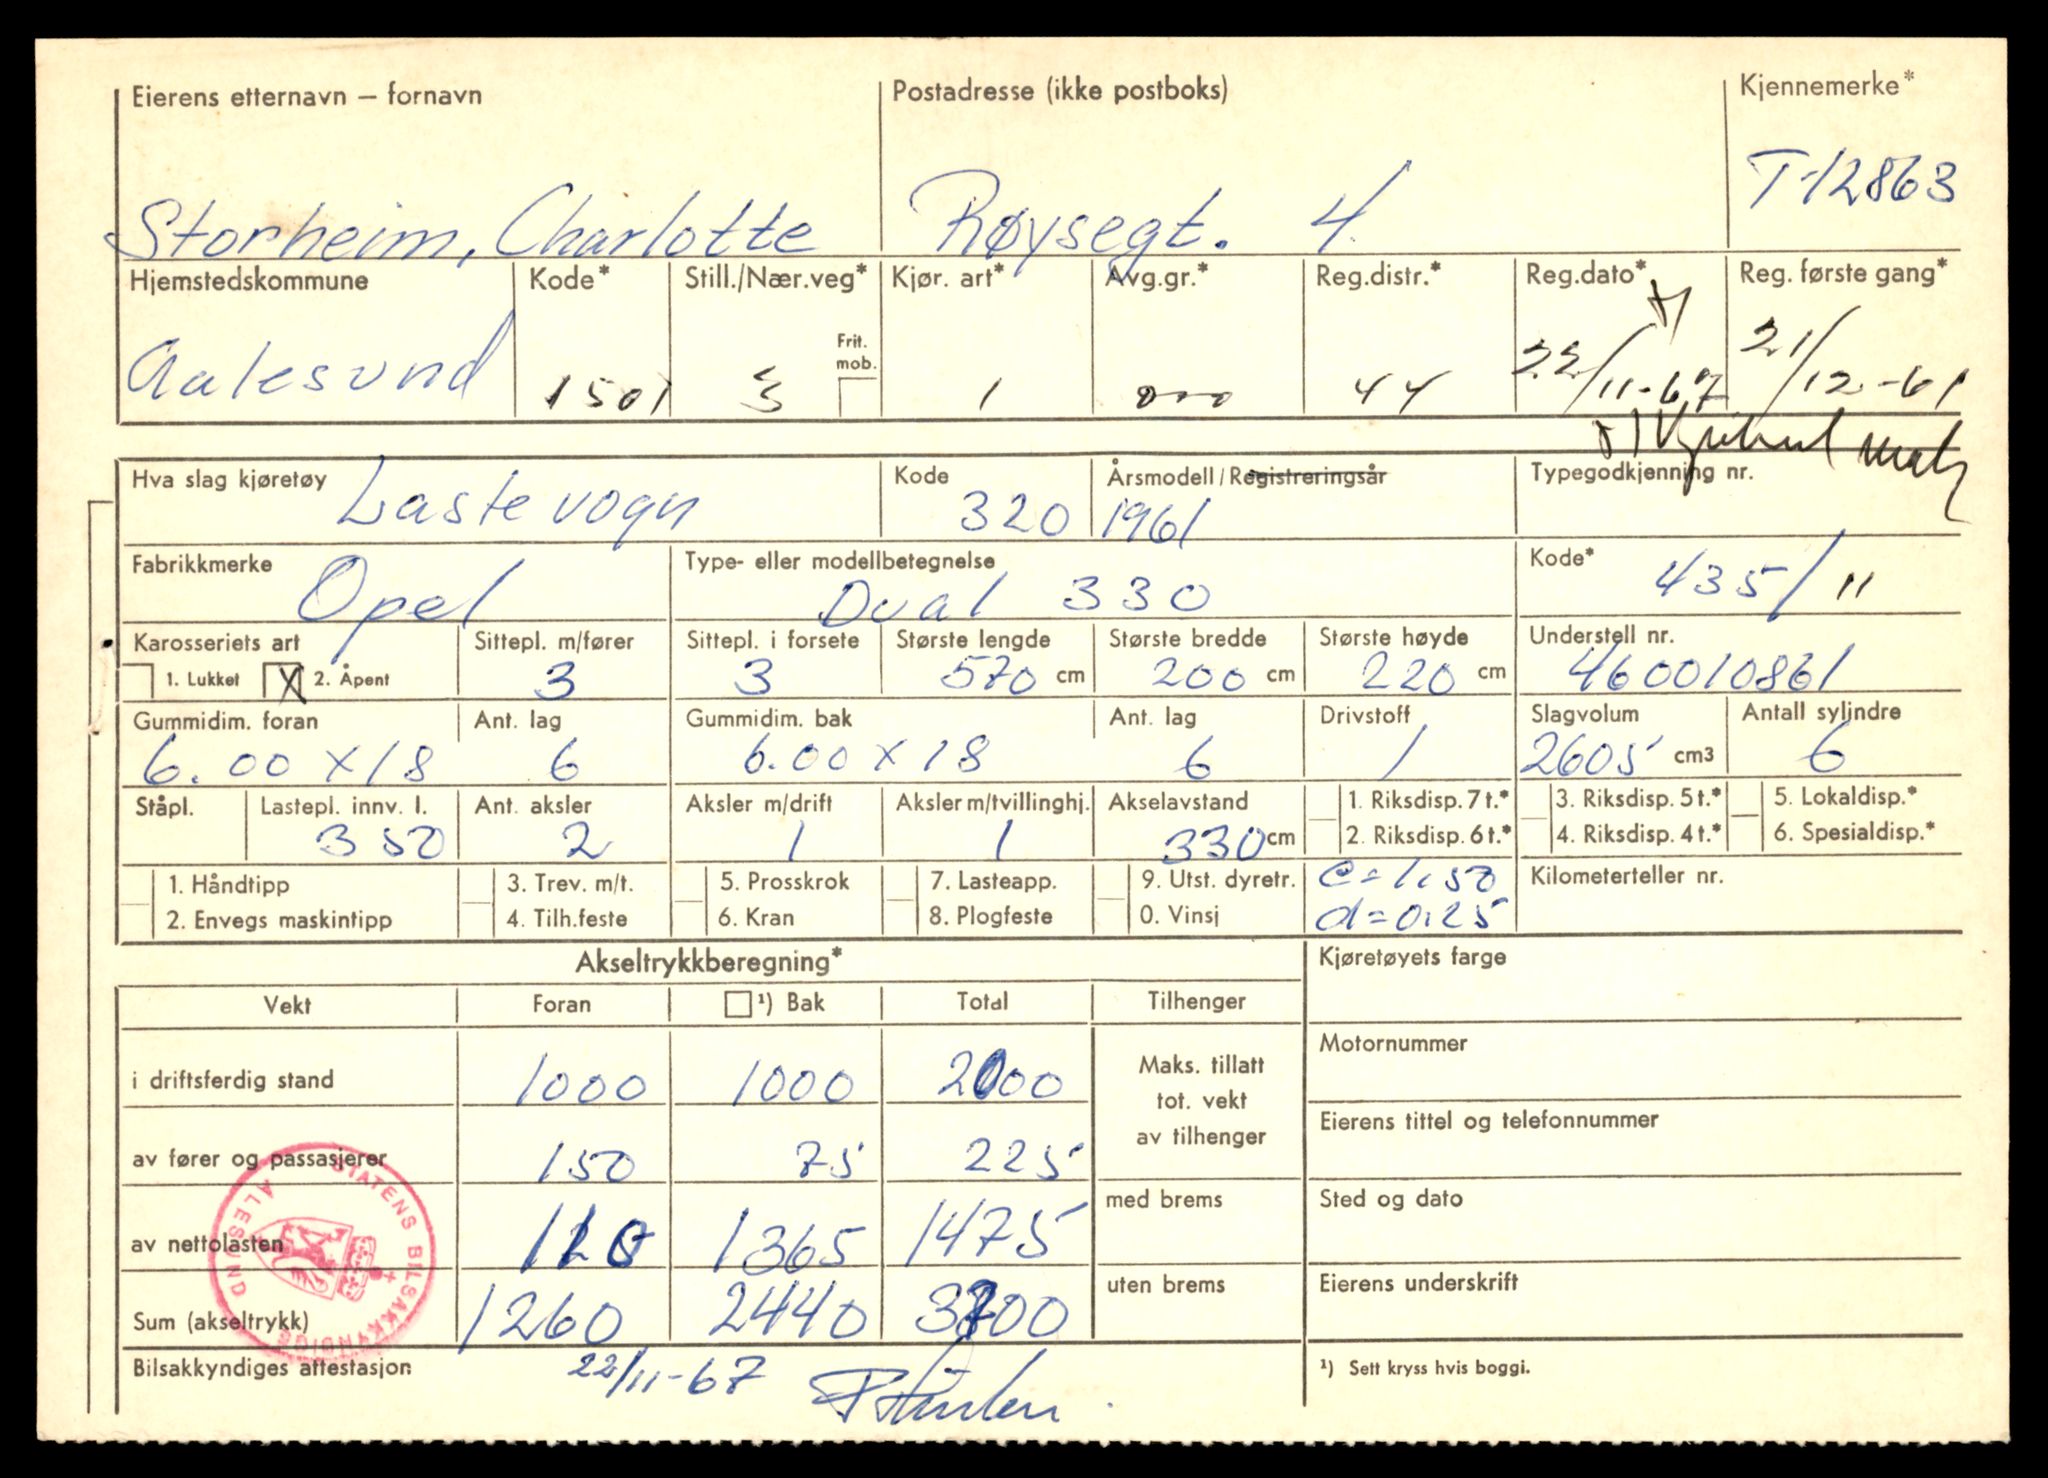 Eierens etternavn – fornavn Postadresse (ikke postboks) Kjennemerke*
Storheim, Charlotte Røysegt. 4 T-12863
Hjemstedskommune Kode* Still./Nær.veg* Kjør. art* Avg.gr.* Reg.distr.* Reg.dato* Reg. første gang*
Frit. mob.
Aalesund 1501 3 1 000 44 22/11-67 21/12-61
Hva slag kjøretøy Kode Årsmodell/Registreringsår Typegodkjenning nr.
Lastevogn 320 1961
Fabrikkmerke Type- eller modellbetegnelse Kode*
Opel Dual 330 435/11
Karosseriets art Sittepl. m/fører Sittepl. i forsete Største lengde Største bredde Største høyde Understell nr.
1. Lukket X 2. Åpent 3 3 570 cm 200 cm 220 cm 460010861
Gummidim. foran Ant. lag Gummidim. bak Ant. lag Drivstoff Slagvolum Antall sylindre
6.00 x 18 6 6.00 x 18 6 1 2605 cm3 6
Ståpl. Lastepl. innv. l. Ant. aksler Aksler m/drift Aksler m/tvillinghj. Akselavstand 1. Riksdisp. 7 t.* 3. Riksdisp. 5 t.* 5. Lokaldisp.*
350 2 1 1 330 cm 2. Riksdisp. 6 t.* 4. Riksdisp. 4 t.* 6. Spesialdisp.*
1. Håndtipp 3. Trev. m/t. 5. Prosskrok 7. Lasteapp. 9. Utst. dyretr. c=1.50 Kilometerteller nr.
2. Envegs maskintipp 4. Tilh.feste 6. Kran 8. Plogfeste 0. Vinsj d=0.25
Akseltrykkberegning* Kjøretøyets farge
Vekt Foran ¹) Bak Total Tilhenger
Motornummer
i driftsferdig stand 1000 1000 2000 Maks. tillatt
tot. vekt
av tilhenger
Eierens tittel og telefonnummer
av fører og passasjerer 150 75 225
STATENS BILSAKKYNDIGE ÅLESUND
med brems Sted og dato
av nettolasten 110 1365 1475
uten brems Eierens underskrift
Sum (akseltrykk) 1260 2440 3700
Bilsakkyndiges attestasjon 22/11-67 ¹) Sett kryss hvis boggi.